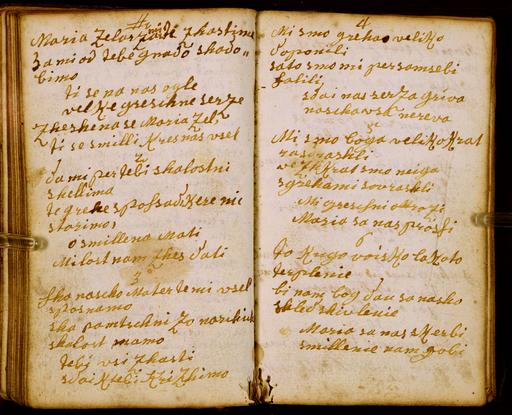 Maria Zelos zhasti zkastimo
Sa mi od tebe gnado skado-
bimo
ti se na nas ogle
velke greschne serze
Zherkena se Maria Zel
ti se smilli kres nas vsel
2
da mi per tebi shalostni
skellimo
te greke spossad kere mi
storimo
o smillena Mati
Milost nam zhes dati
3
sko nasko Mater te mi vsel
sposnamo
ska pamtschni Zo
skalost mamo
tebi vsi zkasti
sdai kteli
4
Mi smo grekao veliko
Doponili
sato smo mi per sam sebi
falili
sdai nas serza griva
naska nereva
5
Mi smo boga veliko krat
rasdraskli
vezhkrat smo nega
sgrekami sovraskli
Mi greschni otrozi
Maria sa nas prossi
6
to kugo voisko lakoto
terplenie
bi nam bog dau sa nasko
skled skivlenie
Maria sa nas skerbi
smillenie nam gobi